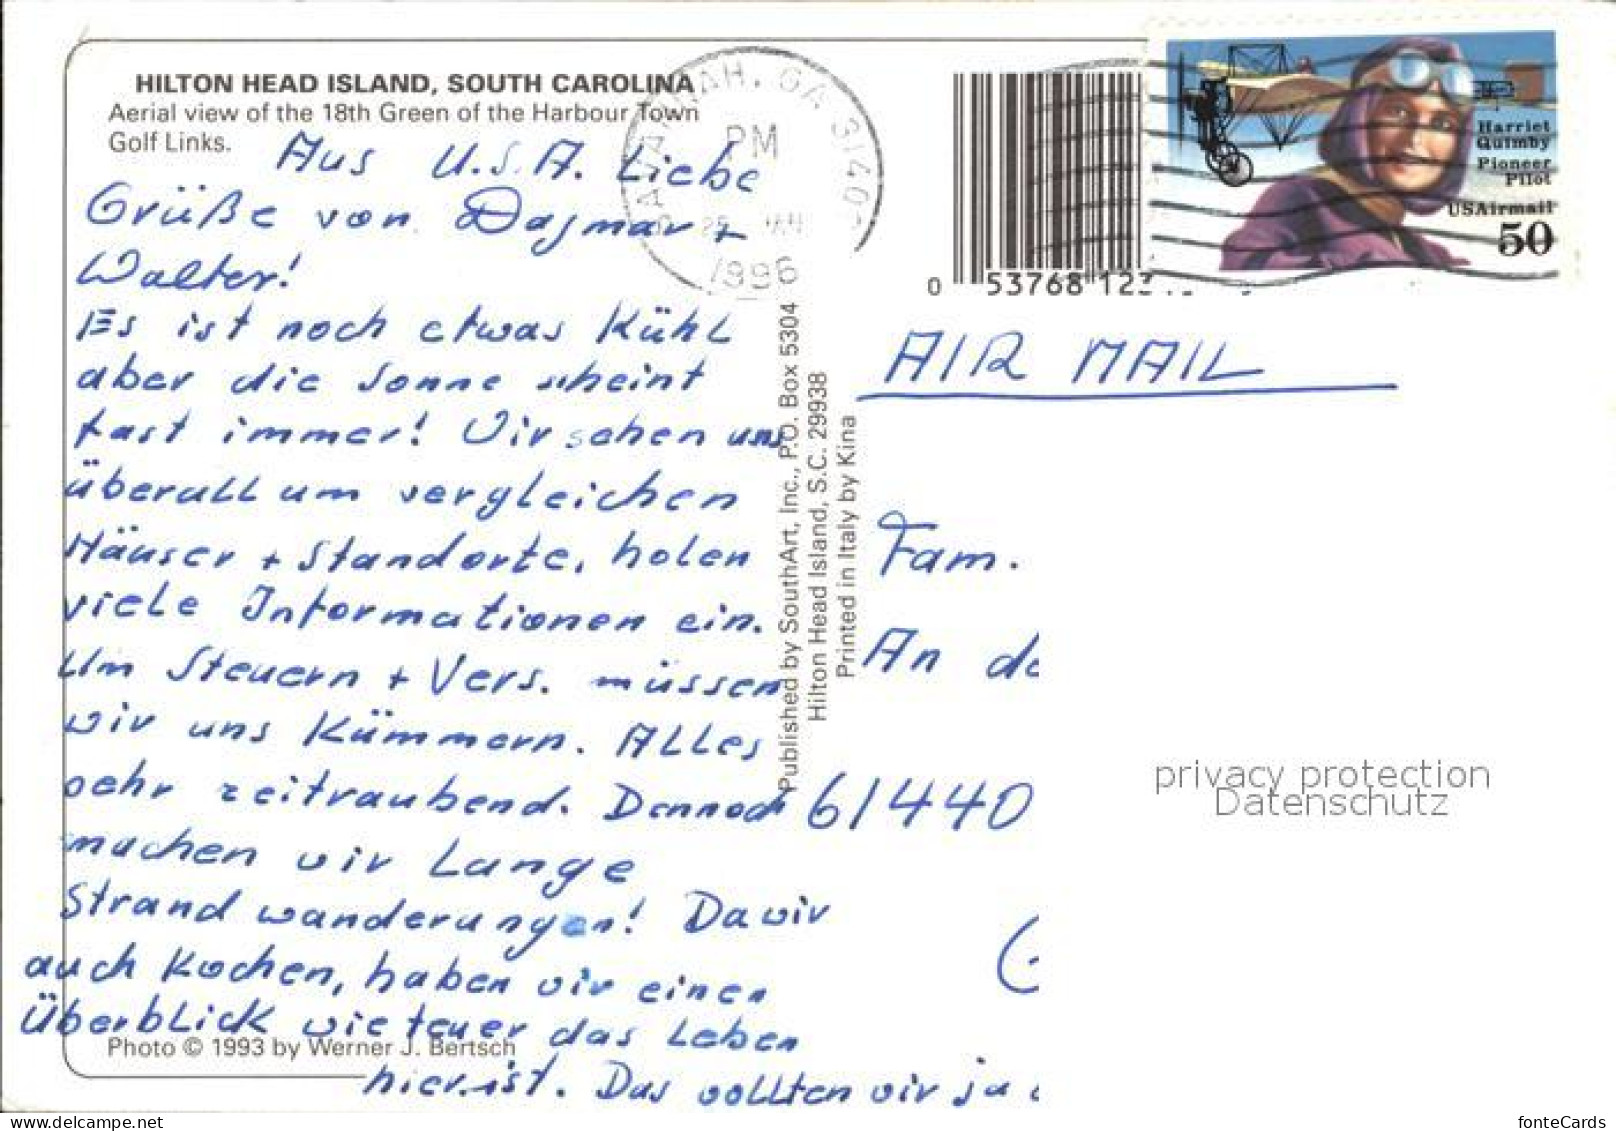 HILTON HEAD ISLAND, SOUTH CAROLINA
Aerial view of the 18th Green of the Harbour Town
Golf Links.
Aus U.S.A. Liebe
Grüße von Dagmar +
Walter!
Es ist noch etwas Kühl
aber die Sonne scheint
fast immer! Wir sehen uns
überall um vergleichen
Häuser + Standorte, holen
viele Informationen ein.
Um Steuern + Vers. müssen
wir uns Kümmern. Alles
sehr zeitraubend. Dennoch
machen wir Lange
Strandwanderungen! Da wir
auch Kochen, haben wir einen
Überblick wie teuer das Leben
hier ist. Das wollten wir ja
Photo © 1993 by Werner J. Bertsch
Published by SouthArt, Inc., P.O. Box 5304
Hilton Head Island, S.C. 29938
Printed in Italy by Kina
SAVANNAH, GA 3140
PM
1996
0 53768 12
Harriet
Quimby
Pioneer
Pilot
USAirmail
50
AIR MAIL
Fam.
An de
61440
privacy protection
Datenschutz
www.delcampe.net
fonteCards